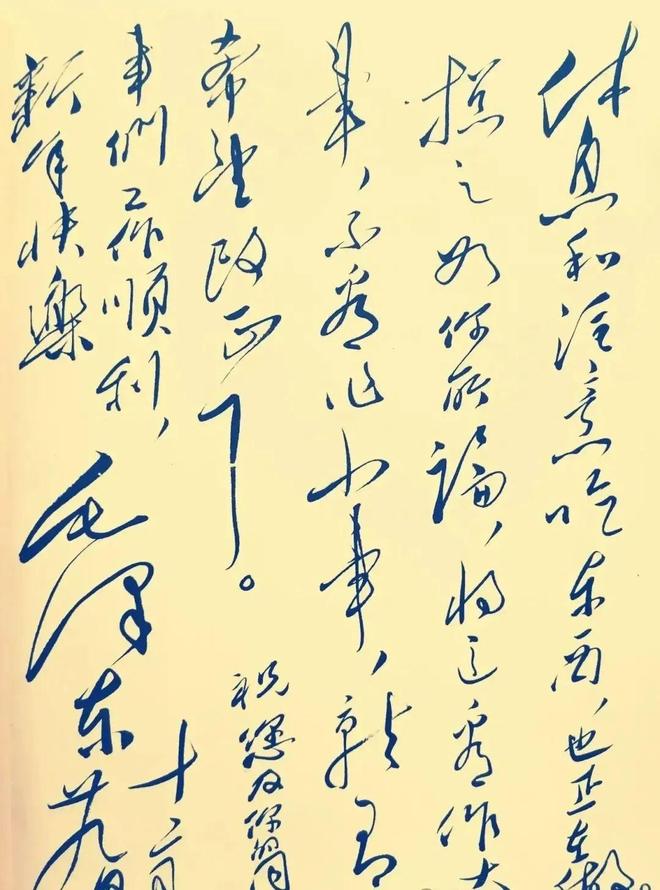 休息和注意吃东西，也正在做。
摠之如你所論，将这看作大
事，不看作小事，就有
希望改正了。祝您及你的同
事們工作順利，
新年快樂
毛泽东
十二月
廿九日